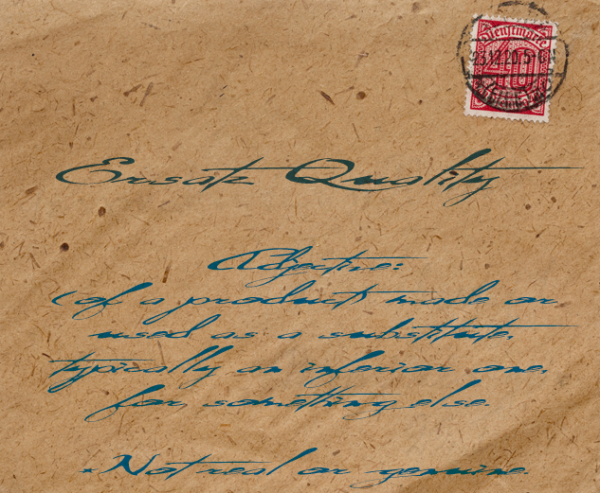 Dienstmarke
23.12.20.5-6
40
Ersatz Quality
Adjective:
(of a product) made or
used as a substitute,
typically an inferior one,
for something else.
*Not real or genuine.